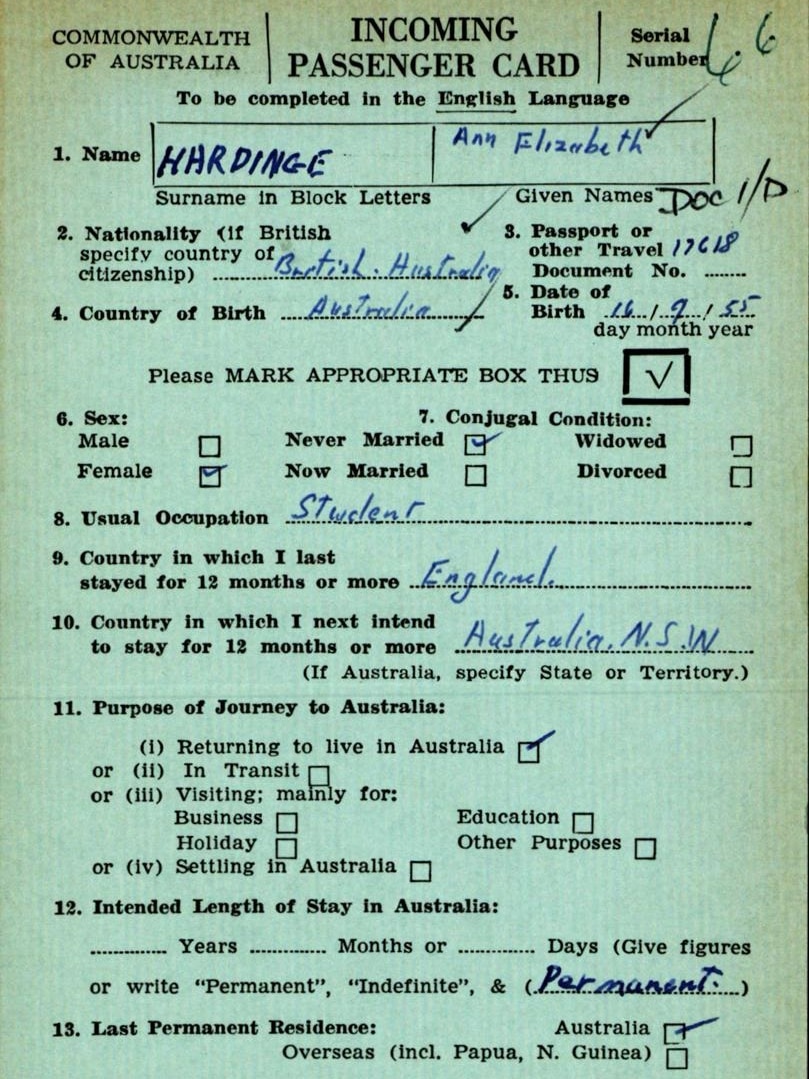 COMMONWEALTH
OF AUSTRALIA
INCOMING
PASSENGER CARD
Serial
Number
To be completed in the English Language
1. Name HARDINGE Ann Elizabeth
Surname in Block Letters Given Names DOC I/D
2. Nationality (if British
specify country of
citizenship) British. Australia
3. Passport or
other Travel 17618
Document No. ........
4. Country of Birth Australia
5. Date of
Birth 16 / 9 / 55
day month year
Please MARK APPROPRIATE BOX THUS √
6. Sex:
7. Conjugal Condition:
Male Never Married Widowed
Female Now Married Divorced
8. Usual Occupation Student
9. Country in which I last
stayed for 12 months or more England.
10. Country in which I next intend
to stay for 12 months or more Australia. N.S.W
(If Australia, specify State or Territory.)
11. Purpose of Journey to Australia:
(i) Returning to live in Australia
or (ii) In Transit
or (iii) Visiting; mainly for:
Business Education
Holiday Other Purposes
or (iv) Settling in Australia
12. Intended Length of Stay in Australia:
............. Years ............. Months or ............. Days (Give figures
or write "Permanent", "Indefinite", & (Permanent.)
13. Last Permanent Residence: Australia
Overseas (incl. Papua, N. Guinea)